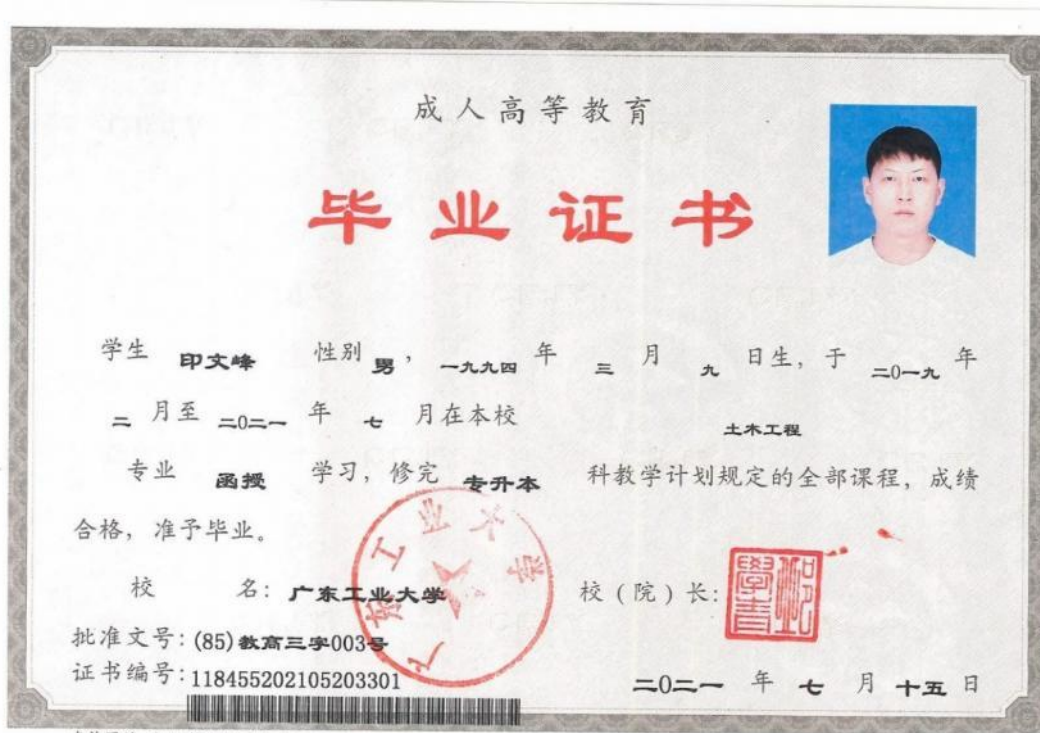 成人高等教育
毕业证书
学生 印文峰 性别 男, 一九九四 年 三 月 九 日生, 于 二0一九 年
二 月至 二0二一 年 七 月在本校 土木工程
专业 函授 学习, 修完 专升本 科教学计划规定的全部课程, 成绩
合格, 准予毕业。
校 名: 广东工业大学 校(院)长:
广东工业大学
批准文号: (85)教高三字003号
证书编号: 118455202105203301
二0二一 年 七 月 十五 日